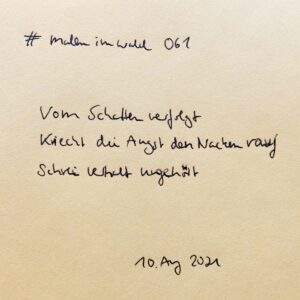 # malen im wald 061
Vom Schatten verfolgt
Kriecht die Angst den Nacken rauf
Schrei verhallt ungehört
10. Aug 2021